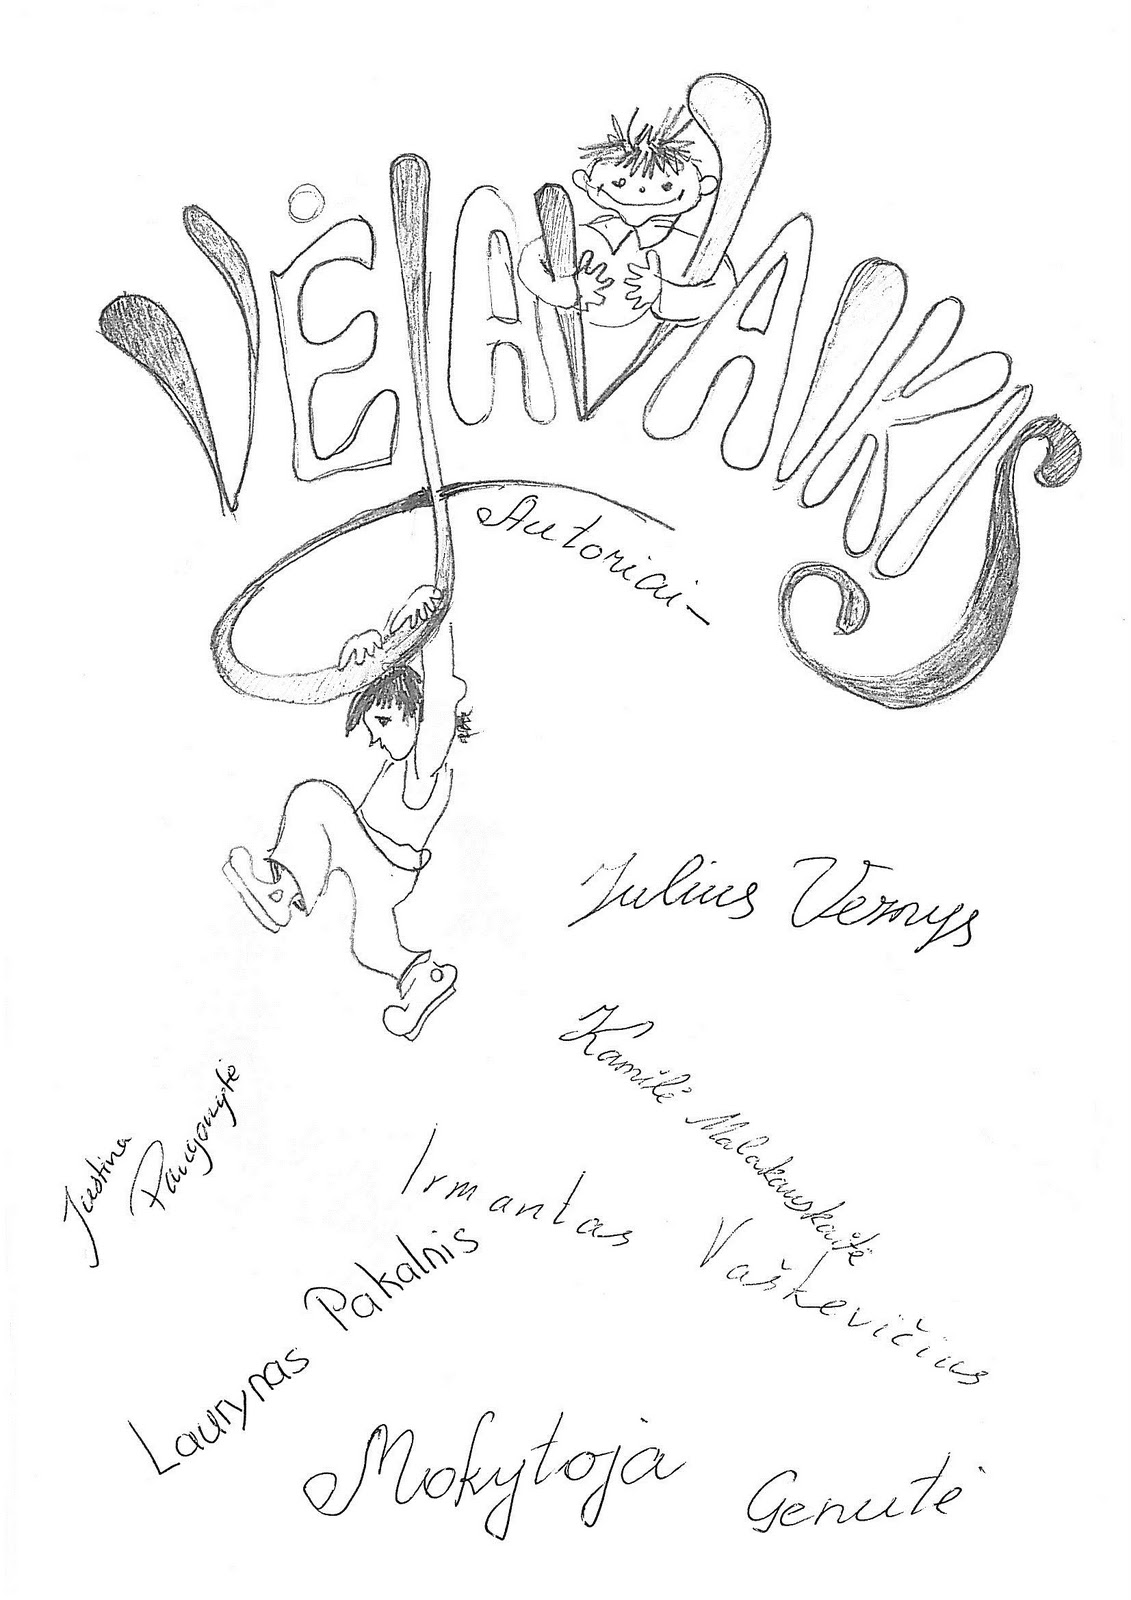 VĖJAVAIKIS
Autoriai –
Julius Vernys
Kamilė Malakauskaitė
Justina
Pangonytė
Irmantas Vaškevičius
Laurynas Pakalnis
Mokytoja Genutė